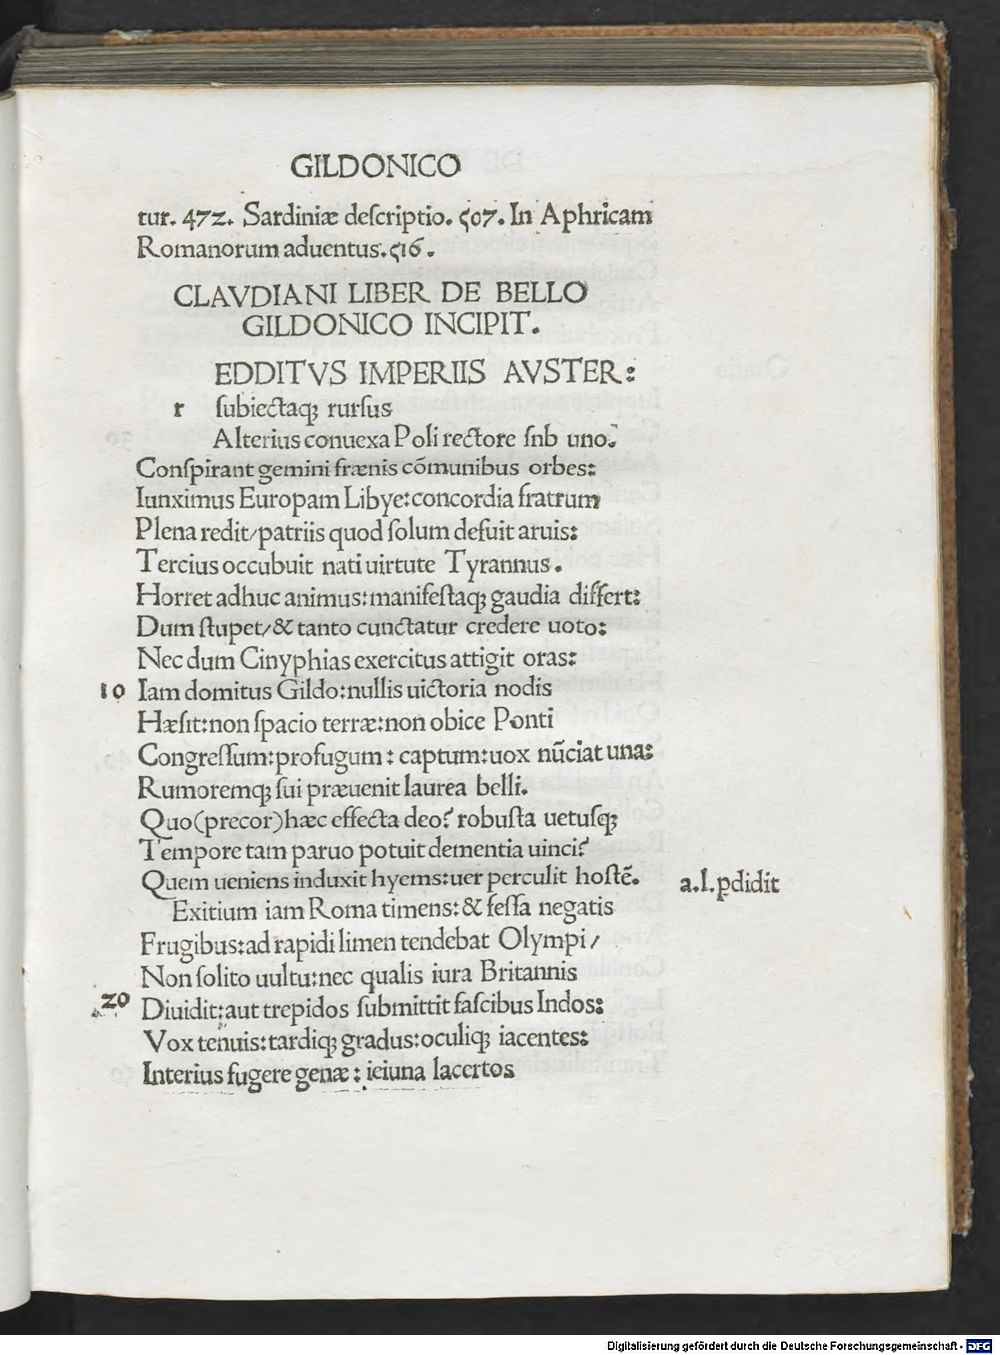 GILDONICO
tur. 472. Sardiniæ deſcriptio. 507. In Aphricam
Romanorum aduentus. 516.
CLAVDIANI LIBER DE BELLO
GILDONICO INCIPIT.
EDDITVS IMPERIIS AVSTER:
r ſubiectaq; rurſus
Alterius conuexa Poli rectore ſnb uno.
Conſpirant gemini frænis cõmunibus orbes:
Iunximus Europam Libye: concordia fratrum
Plena redit/ patriis quod ſolum defuit aruis:
Tercius occubuit nati uirtute Tyrannus.
Horret adhuc animus: manifeſtaq; gaudia differt:
Dum ſtupet/ & tanto cunctatur credere uoto:
Nec dum Cinyphias exercitus attigit oras:
10 Iam domitus Gildo: nullis uictoria nodis
Hæſit: non ſpacio terræ: non obice Ponti
Congreſſum: profugum: captum: uox nũciat una:
Rumoremq; ſui præuenit laurea belli.
Quo (precor) hæc effecta deo? robuſta uetuſq;
Tempore tam paruo potuit dementia uinci?
Quem ueniens induxit hyems: uer perculit hoſtẽ. a. l. ꝑdidit
Exitium iam Roma timens: & feſſa negatis
Frugibus: ad rapidi limen tendebat Olympi/
Non ſolito uultu: nec qualis iura Britannis
20 Diuidit: aut trepidos ſubmittit faſcibus Indos:
Vox tenuis: tardiq; gradus: oculiq; iacentes:
Interius fugere genæ: ieiuna lacertos
Digitalisierung gefördert durch die Deutsche Forschungsgemeinschaft - DFG